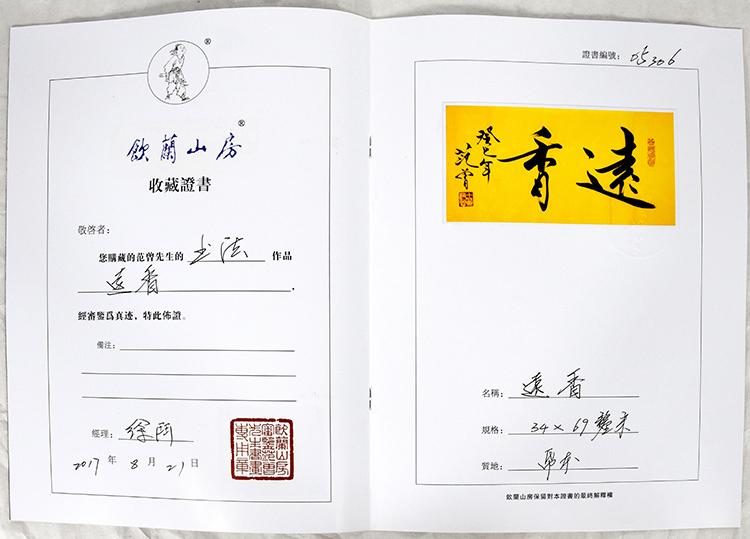 ®
飲蘭山房®
收藏證書
敬啓者：
您購藏的范曾先生的 书法 作品
遠香 .
經審鑒爲真迹，特此佈證。
備注：
經理：
2017 年 8 月 21 日
證書編號： 05306
遠香
癸巳年
范曾
名稱： 遠香
規格： 34×69 釐米
質地：
飲蘭山房保留對本證書的最終解釋權